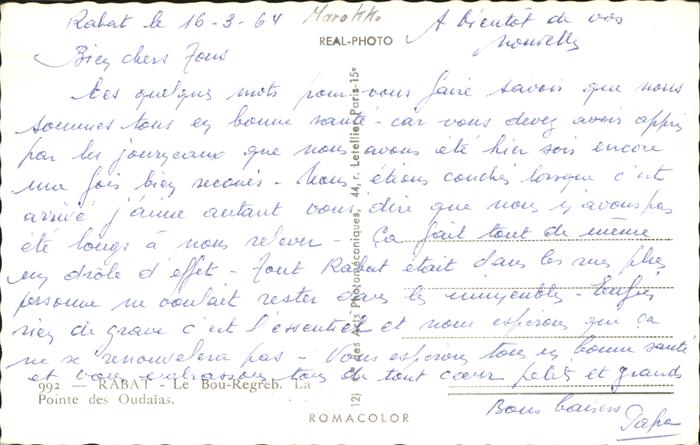 Rabat le 16-3-64
Marokko
A bientôt de vos
nouvelles
REAL-PHOTO
Bien chers Tous
Ces quelques mots pour vous faire savoir que nous
sommes tous en bonne santé - car vous devez avoir appris
par les journeaux que nous avons été hier soir encore
une fois bien secoués - Nous étions couchés lorsque c'est
arrivé j'aime autant vous dire que nous n'avons pas
été longs à nous relever - Ça fait tout de même
un drôle d'effet - Tout Rabat était dans les rues plus
personne ne voulait rester dans les immeubles - Enfin
rien de grave c'est l'essentiel et nous espérons que ça
ne se renouvelera pas - Vous espérons tous en bonne santé
et vous embrassons tous de tout cœur petits et grands
Bons baisers
Papa
992 — RABAT - Le Bou-Regreb. La
Pointe des Oudaïas.
Les Arts Photomécaniques, 44, r. Letellier, Paris-15e
ROMACOLOR